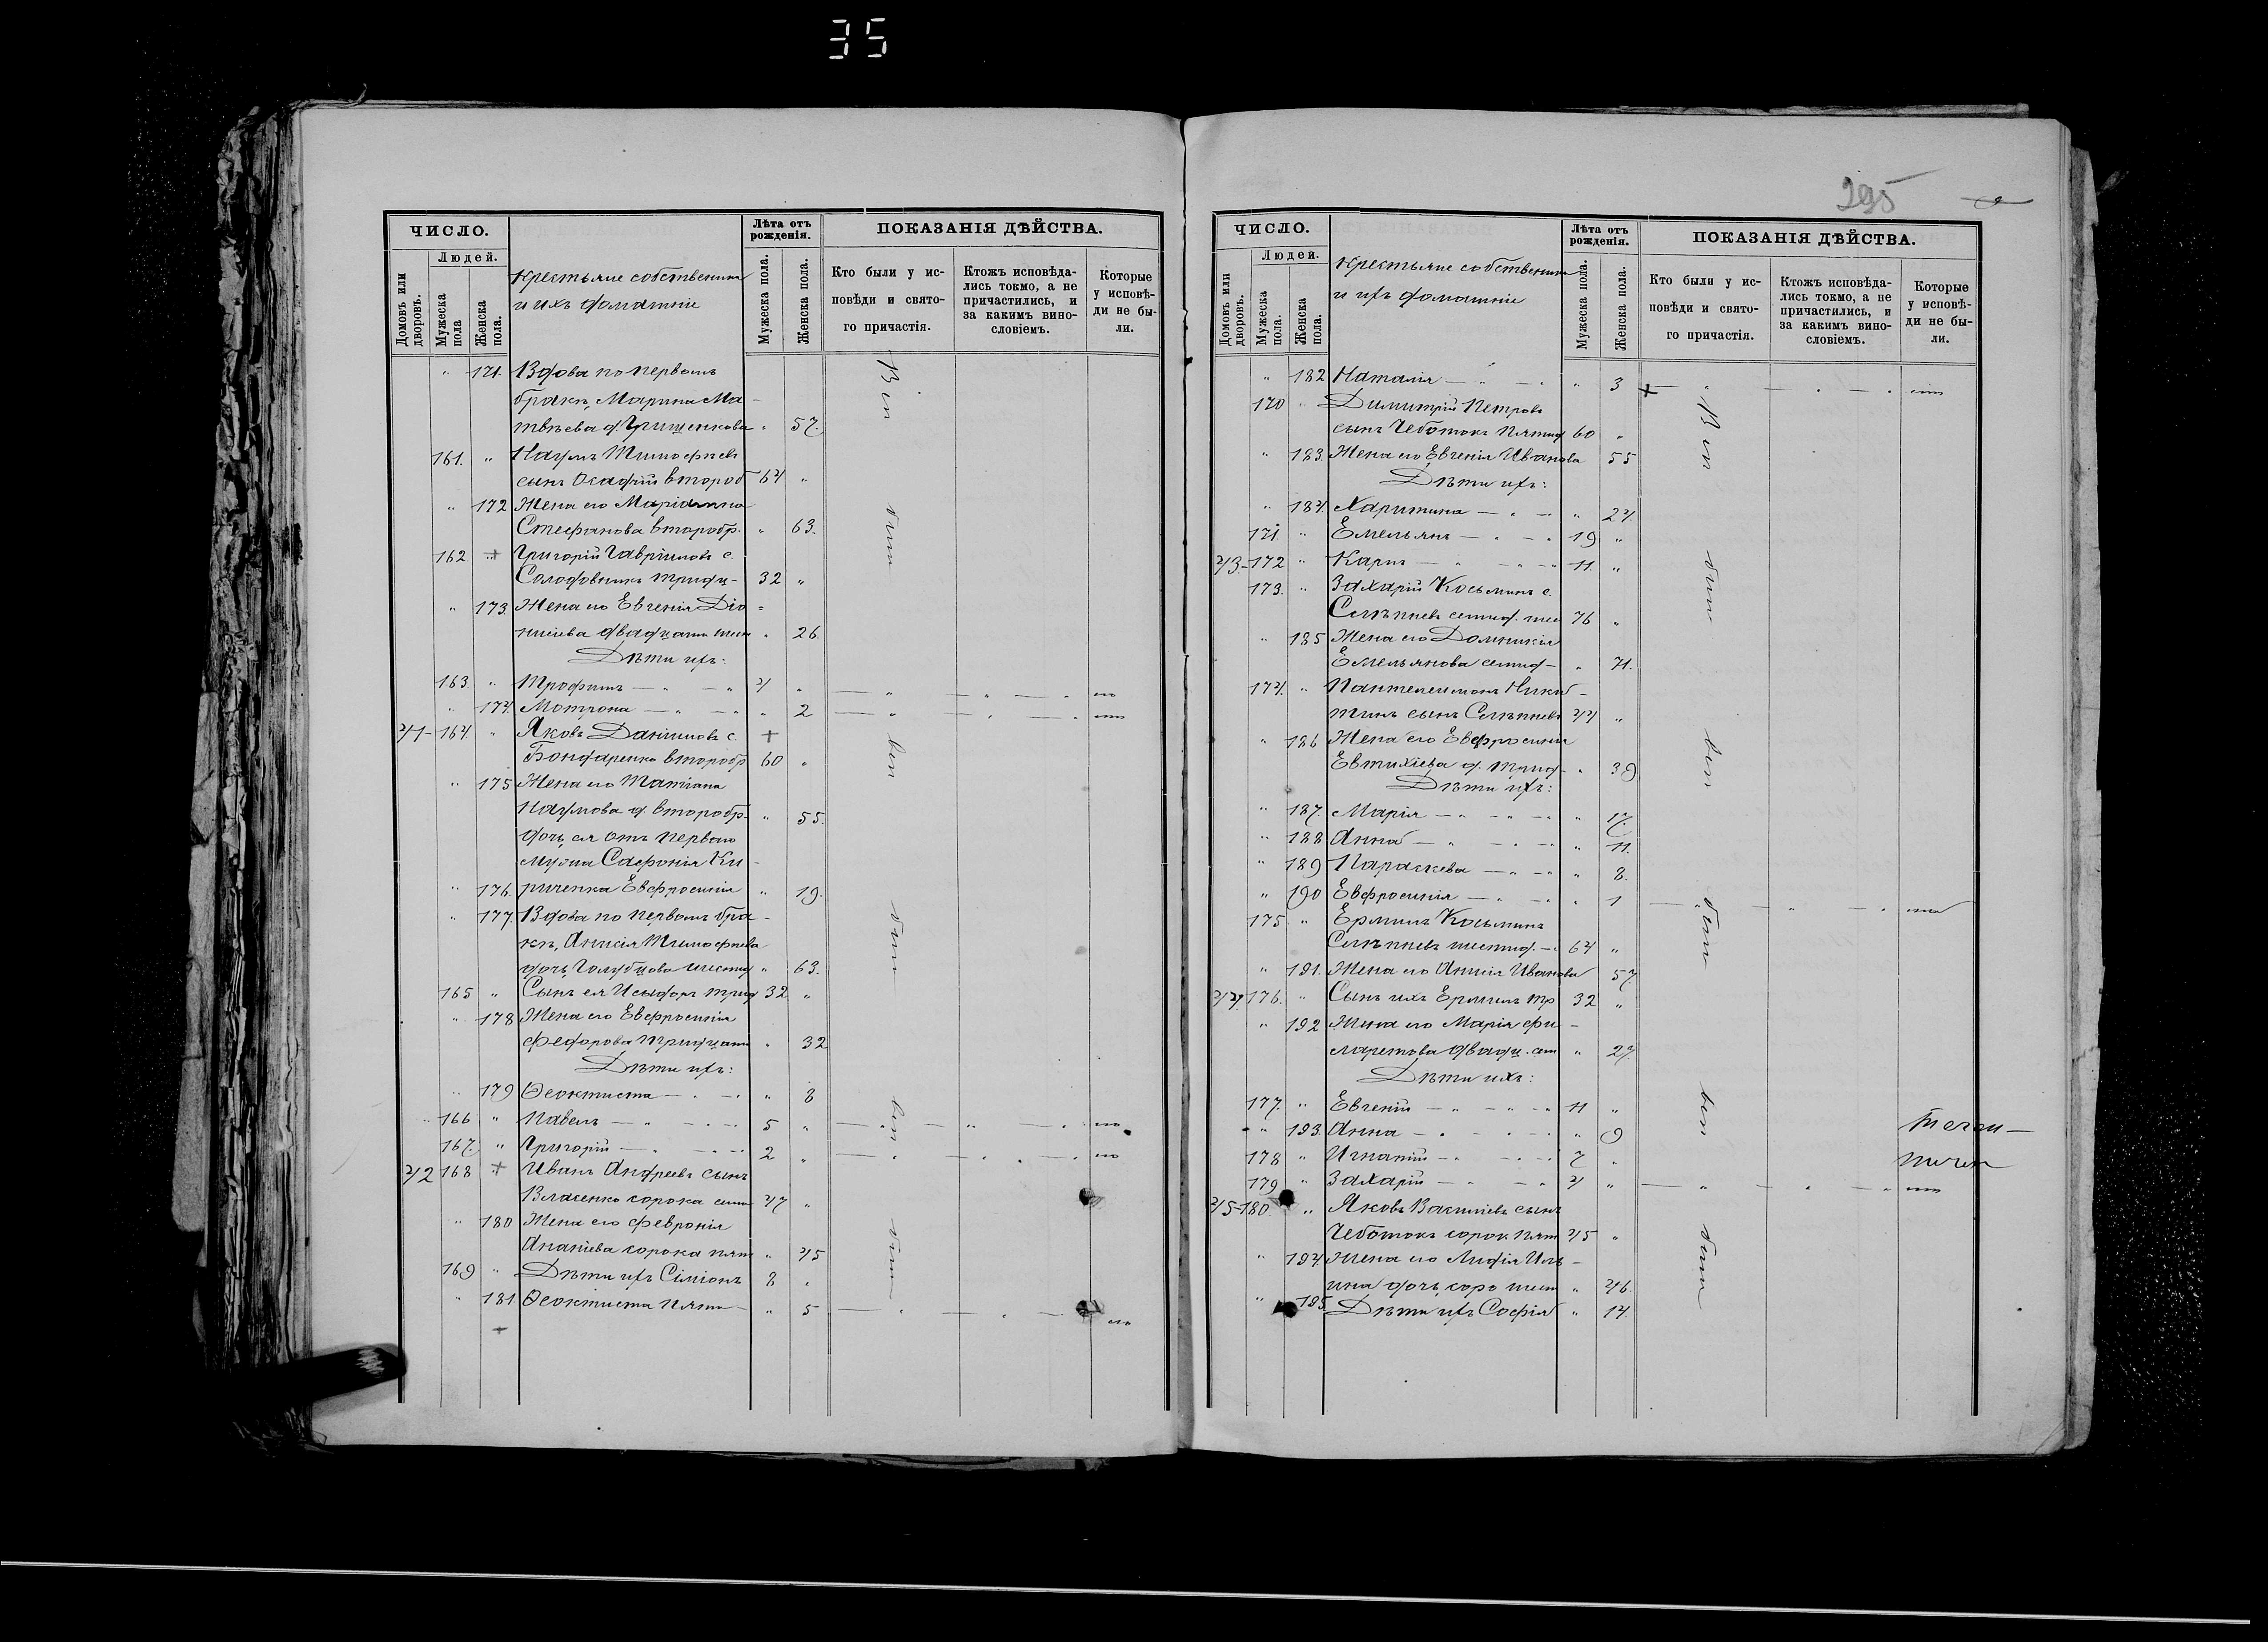 35
ЧИСЛО.
Людей.
Домовъ или дворовъ.
Мужеска пола
Женска пола.
Крестьяне собственники
и ихъ домашніе
Лѣта отъ рожденія.
Мужеска пола.
Женска пола.
ПОКАЗАНІЯ ДѢЙСТВА.
Кто были у исповѣди и святого причастія.
Ктожъ исповѣдались токмо, а не причастились, и за какимъ винословіемъ.
Которые у исповѣди не были.
" 171. Вдова по первомъ
бракѣ, Марина Ма-
твѣева д. Грищенкова " 57.
161. " Наумъ Тимофѣевъ
сынъ Осадчій второб 64 "
" 172 Жена его Маріамна
Стефанова второбр. " 63.
162 + Григорій Гавріиловъ с.
Солодовникъ тридц- 32 "
" 173. Жена его Евгенія Діо=
нисіева двадцати шест " 26.
Дѣти ихъ:
163. " Трофимъ — " — " 4 " — " — " — "
" 174. Мотрона — " — " " 2 — " — " — "
41- 164. " Яковъ Даніиловъ с. +
Бондаренко второбр 60 "
" 175 Жена его Татіана
Наумова д. второбр- " 55.
дочь ея отъ перваго
мужа Сафонія Ки-
" 176. риченка Евфросинія " 19.
" 177. Вдова по первомъ бра-
кѣ, Анисія Тимофѣева
дочь, Голубцова шестид " 63.
165 " Сынъ ея Исидоръ трид 32 "
" 178 Жена его Евфросинія
Федорова тридцати " 32
Дѣти ихъ:
" 179 Ѳеоктиста — " — " " 8
166 " Павелъ — " — " 5 " — " — " — "
167. " Григорій — " — " 2 " — " — " — "
42 168 + Иванъ Андреевъ сынъ
Власенко сорока семи 47 "
" 180 Жена его Февронія
Ананіева сорока пят " 45
169 " Дѣти ихъ Симіонъ 8 "
" 181. Ѳеоктиста пяти — " 5 — " — " — "
+
Вси
были
вси
были
вси
были
295
ЧИСЛО.
Людей.
Домовъ или дворовъ.
Мужеска пола.
Женска пола.
Крестьяне собственники
и ихъ домашніе
Лѣта отъ рожденія.
Мужеска пола.
Женска пола.
ПОКАЗАНІЯ ДѢЙСТВА.
Кто были у исповѣди и святого причастія.
Ктожъ исповѣдались токмо, а не причастились, и за какимъ винословіемъ.
Которые у исповѣди не были.
" 182 Наталія — " — " " 3 + — " — " — "
170 " Димитрій Петровъ
сынъ Чеботокъ пятид 60 "
" 183. Жена его Евгенія Иванова 55
Дѣти ихъ:
" 184. Харитина — " — " 24.
171. " Емельянъ — " — " 19 "
43- 172 " Карпъ — " — " 11. "
173. " Захарій Косьминъ с.
Слѣпневъ семид. шес 76 "
" 185 Жена его Домникія
Емельянова семид- " 71.
174. " Пантелеимонъ Ники-
тинъ сынъ Слѣпневъ 44 "
" 186 Жена его Евфросинія
Евтихіева д. трид- " 39
Дѣти ихъ:
" 187. Марія — " — " " 17.
" 188 Анна — " — " " 11.
" 189 Параскева — " — " " 8.
" 190 Евфросинія — " — " " 1 — " — " — "
175. " Ермилъ Косьминъ
Слѣпневъ шестид. — 64 "
" 191. Жена его Анисія Иванова 57.
44. 176. " Сынъ ихъ Ермилъ тр 32 "
" 192 Жена его Марія Фи-
ларетова двадц. сем " 27.
Дѣти ихъ:
177. " Евгеній — " — " 11 "
" 193. Анна — " — " " 9
178 " Игнатій — " — " 7 "
179 " Захарій — " — " 4 " — " — " — "
45- 180. " Яковъ Василіевъ сынъ
Чеботокъ сорок пят 45 "
" 194. Жена его Лидія Иль-
ина дочь, соро шест " 46.
" 195. Дѣти ихъ Софія " 14.
Вси
были
вси
были
вси
были